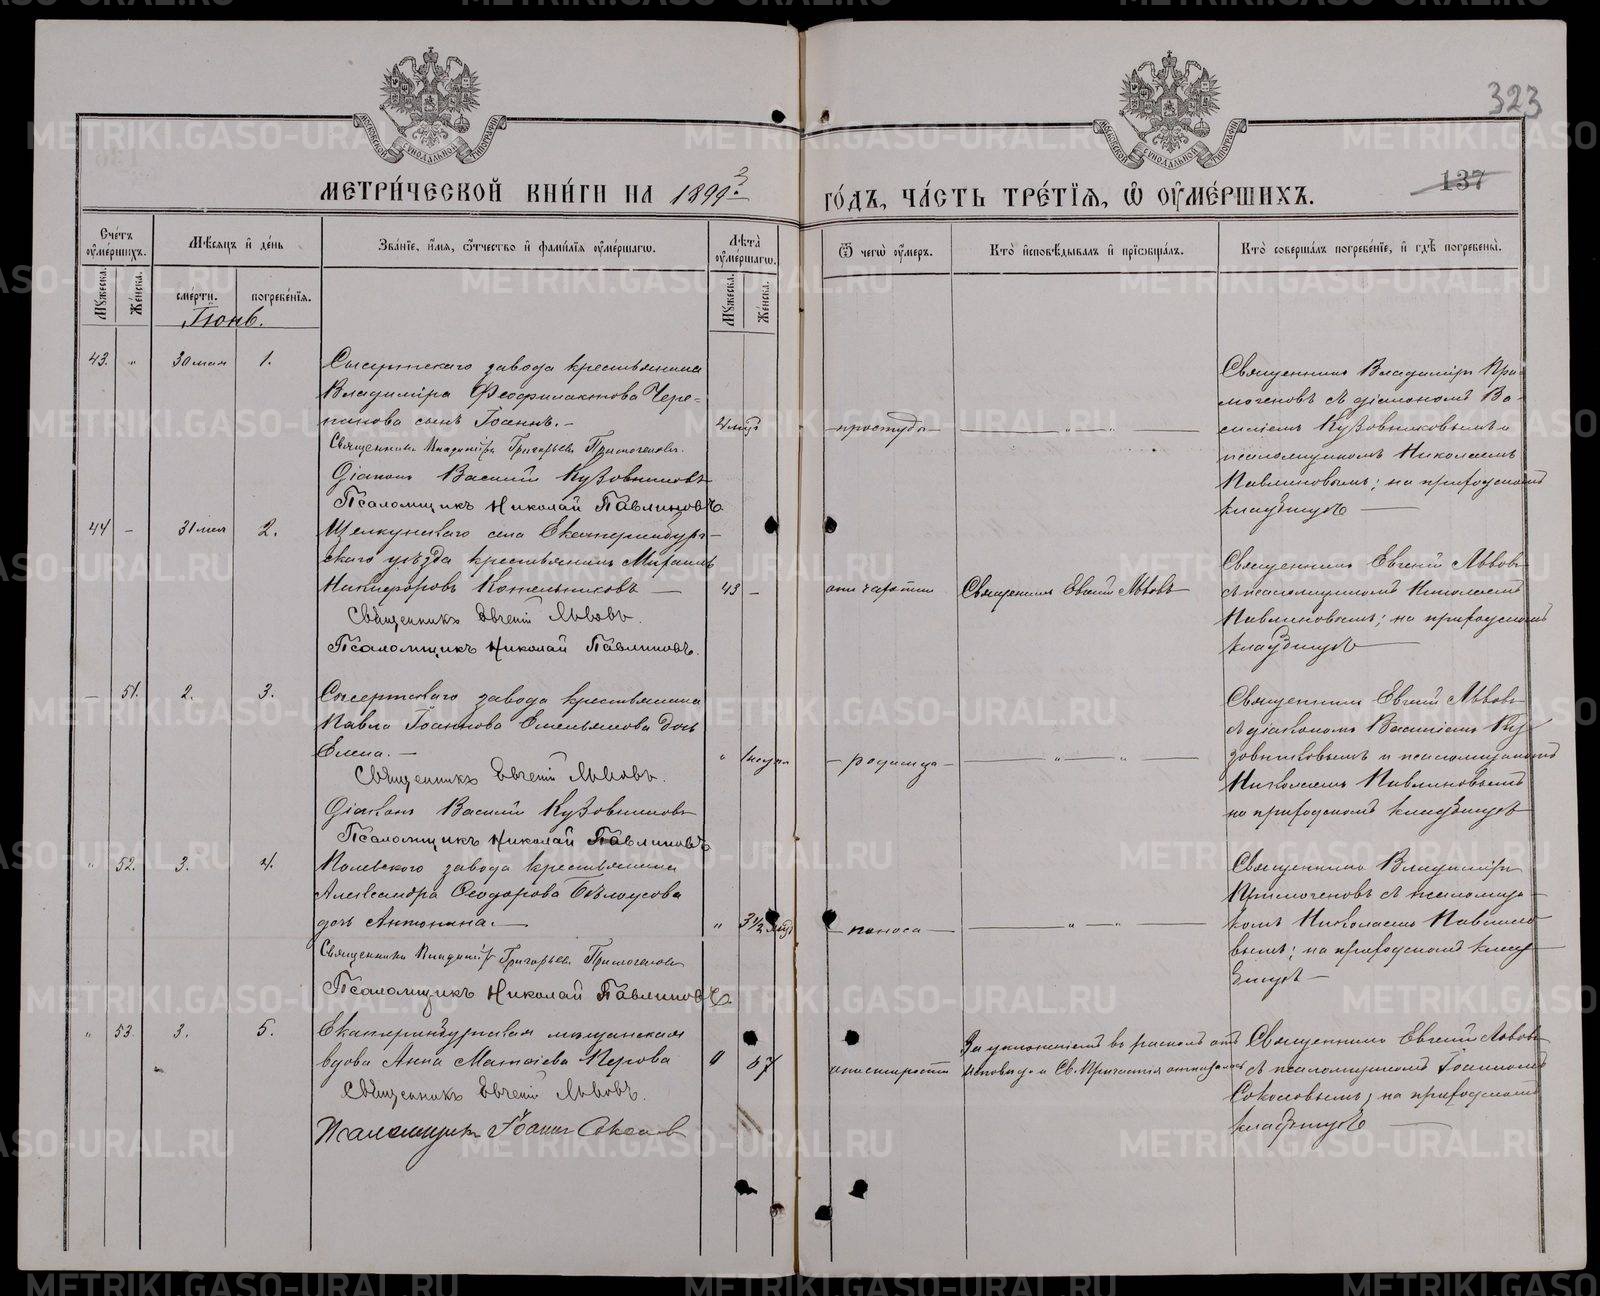 323
137
МЕТРИ́ЧЕСКОЙ КНИ́ГИ НА 1899 3 ГО́ДЪ, ЧА́СТЬ ТРЕ́ТІЯ, Ѿ ОУМЕ́РШИХЪ.
МОСКОВСКОЙ СѴНОДАЛЬНОЙ ТИПОГРАФІИ
МОСКОВСКОЙ СѴНОДАЛЬНОЙ ТИПОГРАФІИ
Сче́тъ оуме́ршихъ.
Мꙋжеска.
Же́нска.
Мѣсяцъ и де́нь
сме́рти.
погребе́нїя.
Зва́нїе, и́мя, ѻ́тчество и фами́лїя оуме́ршагѡ.
Лѣта̀ оуме́ршагѡ.
Мꙋжеска.
Же́нска.
Ѿ чегѡ̀ оу́меръ.
Кто̀ исповѣ́дывалъ и прїѡбща́лъ.
Кто̀ соверша́лъ погребе́нїе, и гдѣ̀ погребены̀.
Іюнь.
43. " 30 мая 1.
Сысертскаго завода крестьянина
Владиміра Феофилактова Чере-
панова сынъ Іоаннъ. –
Священникъ Владиміръ Григорьевъ Примогеновъ.
Діаконъ Василій Кузовниковъ
Псаломщикъ Николай Павлиновъ
простуды
Священникъ Владиміръ При-
могеновъ съ діакономъ Ва-
силіемъ Кузовниковымъ и
псаломщикомъ Николаемъ
Павлиновымъ; на приходскомъ
кладбищѣ
44 – 31 мая 2.
Щелкунскаго села Екатеринбург-
скаго уѣзда крестьянинъ
Никифоровъ Котельниковъ
Священникъ Евгеній Львовъ.
Псаломщикъ Николай Павлиновъ.
43 –
отъ чахотки
Священникъ Евгеній Львовъ
Священникъ Евгеній Львовъ
съ псаломщикомъ Николаемъ
Павлиновымъ; на приходскомъ
кладбищѣ
– 51. 2. 3.
Сысертскаго завода крестьянина
Павла Іоаннова Емельянова дочь
Елена. –
Священникъ Евгеній Львовъ.
Діаконъ Василій Кузовниковъ
Псаломщикъ Николай Павлиновъ
родимца
Священникъ Евгеній Львовъ
съ діакономъ Василіемъ Ку-
зовниковымъ и псаломщикомъ
Николаемъ Павлиновымъ
на приходскомъ кладбищѣ
" 52. 3. 4.
Полевского завода крестьянина
Александра Ѳеодорова Бѣлоусова
дочь Антонина. –
Священникъ Владиміръ Григорьевъ Примогеновъ
Псаломщикъ Николай Павлиновъ
" 3½
поноса
Священникъ Владиміръ
Примогеновъ съ псаломщи-
комъ Николаемъ Павлино-
вымъ; на приходскомъ клад-
бищѣ
" 53. 3. 5.
Екатеринбургская мѣщанская
вдова Анна Матѳіева Перова
Священникъ Евгеній Львовъ.
Псаломщикъ Іоаннъ Соколовъ
отъ старости
За уклоненіемъ въ расколъ отъ
исповѣди и Св. Причастія отказалась
Священникъ Евгеній Львовъ
съ псаломщикомъ Іоанномъ
Соколовымъ; на приходскомъ
кладбищѣ
METRIKI.GASO-URAL.RU